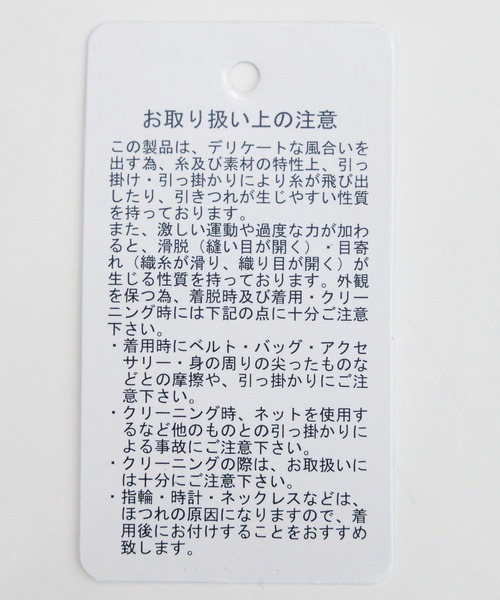 お取り扱い上の注意
この製品は、デリケートな風合いを
出す為、糸及び素材の特性上、引っ
掛け・引っ掛かりにより糸が飛び出
したり、引きつれが生じやすい性質
を持っております。
また、激しい運動や過度な力が加わ
ると、滑脱（縫い目が開く）・目寄
れ（織糸が滑り、織り目が開く）が
生じる性質を持っております。外観
を保つ為、着脱時及び着用・クリー
ニング時には下記の点に十分ご注意
下さい。
・着用時にベルト・バッグ・アクセ
サリー・身の周りの尖ったものな
どとの摩擦や、引っ掛かりにご注
意下さい。
・クリーニング時、ネットを使用す
るなど他のものとの引っ掛かりに
よる事故にご注意下さい。
・クリーニングの際は、お取扱いに
は十分にご注意下さい。
・指輪・時計・ネックレスなどは、
ほつれの原因になりますので、着
用後にお付けすることをおすすめ
致します。